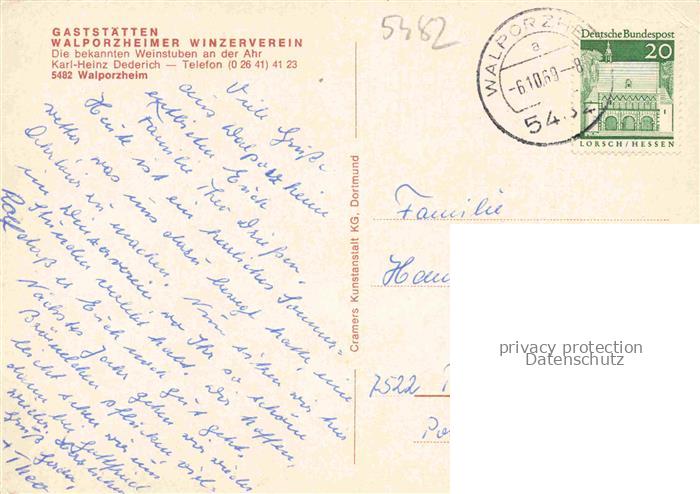 GASTSTÄTTEN
WALPORZHEIMER WINZERVEREIN
Die bekannten Weinstuben an der Ahr
Karl-Heinz Dederich — Telefon (0 26 41) 41 23
5482 Walporzheim
5482
WALPORZHEIM
a
-6.10.69-8
5482
Deutsche Bundespost
20
LORSCH/HESSEN
Viele Grüße
aus Walporzheim
entbieten Euch
Familie Theo
Heute ist ein herrliches Sommer-
wetter was uns dazu bewegt hatte, eine
zu machen. Nun sitzen wir hier
im Winzerverein wo Ihr so schöne
Stunden verlebt habt. Wir hoffen,
daß es Euch noch gut geht.
Nächstes Jahr gehen wir wieder
pflücken viel-
leicht sehen wir uns
dann bei
wieder.
Gruß
+ Theo
Cramers Kunstanstalt KG, Dortmund
Familie
7522
privacy protection
Datenschutz